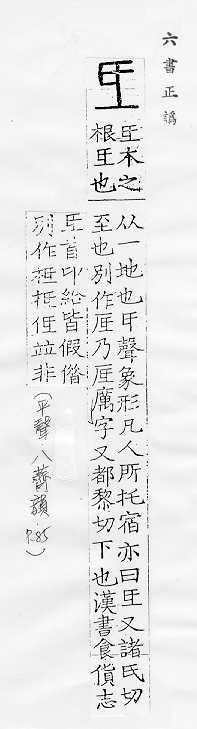 六書正譌
氐
氐木之
根氐也
从一地也氏聲象形凡人所托宿亦曰氐又諸氏切
至也別作厎乃厎厲字又都黎切下也漢書食貨志
氐首卬給皆假偕
別作柢抵低竝非
(平聲・八薺韻 P.85)